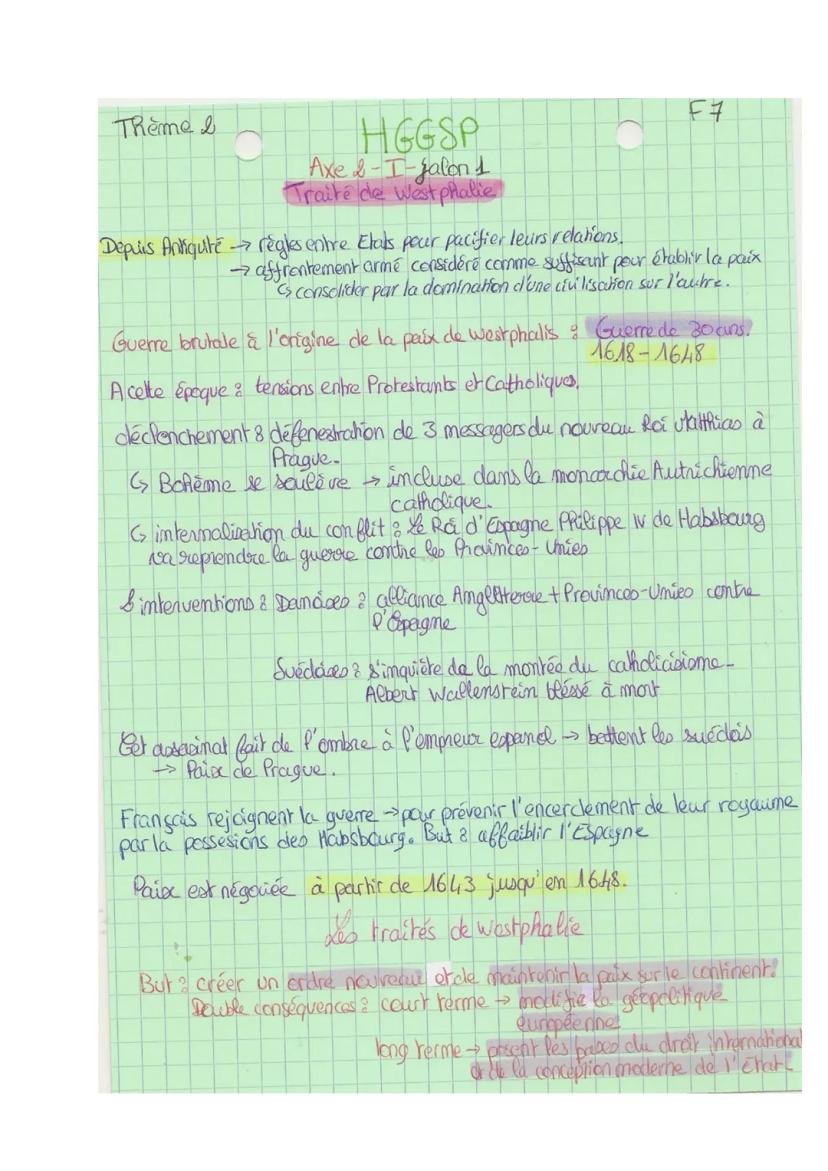 Thème 2
F7
HGGSP
Axe 2 - I - jalon 1
Traité de Westphalie
Depuis Antiquité → règles entre Etats pour pacifier leurs relations.
→ affrontement armé considéré comme suffisant pour établir la paix
↳ consolider par la domination d'une civilisation sur l'autre.
Guerre brutale à l'origine de la paix de westphalis : Guerre de 30 ans.
1618 - 1648
A cette époque : tensions entre Protestants et Catholiques.
déclenchement : défenestration de 3 messagers du nouveau Roi Matthias à
Prague.
↳ Bohême se soulève → incluse dans la monarchie Autrichienne
catholique.
↳ internalisation du conflit : le Roi d'Espagne Philippe IV de Habsbourg
va reprendre la guerre contre les Provinces-Unies
interventions : Danoises : alliance Angleterre + Provinces-Unies contre
l'Espagne
Suédoises : s'inquiète de la montée du catholicisisme -
Albert Wallenstein bléssé à mort
Cet assasinat fait de l'ombre à l'empreur espanol → bettent les suédois
→ Paix de Prague.
Français rejoignent la guerre → pour prévenir l'encerclement de leur royaume
par la possesions des Habsbourg. But : affaiblir l'Espagne
Paix est négociée à partir de 1643 jusqu'en 1648.
Les traités de westphalie
But : créer un ordre nouveau et de maintenir la paix sur le continent.
Double conséquences : court terme → modifie la géopolitique
européenne
long terme → posent les bases du droit international
et de la conception moderne de l'Etat.